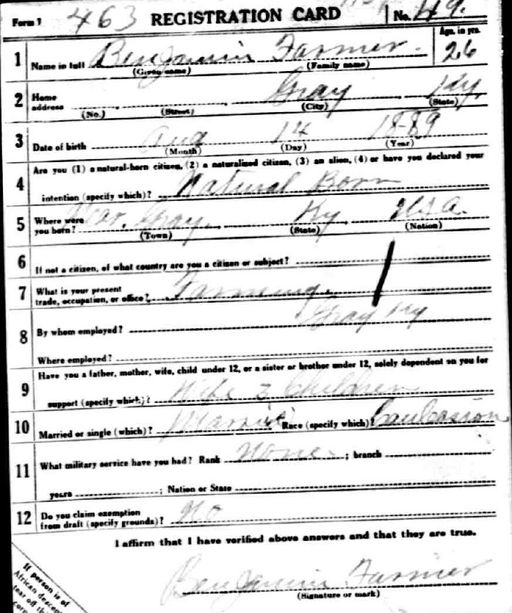 Form 1 463 REGISTRATION CARD No. 49.
Age, in yrs.
1 Name in full Benjamin Farmer. 26
(Given name) (Family name)
2 Home address Gray Ky.
(No.) (Street) (City) (State)
3 Date of birth Aug 14 1889
(Month) (Day) (Year)
Are you (1) a natural-born citizen, (2) a naturalized citizen, (3) an alien, (4) or have you declared your
4 intention (specify which)? Natural Born
5 Where were you born? Near Gray. Ky U.S.A.
(Town) (State) (Nation)
6 If not a citizen, of what country are you a citizen or subject?
7 What is your present trade, occupation, or office? Farming.
8 By whom employed? Gray Ky
Where employed?
Have you a father, mother, wife, child under 12, or a sister or brother under 12, solely dependent on you for
9 support (specify which)? Wife 2 Children
10 Married or single (which)? Married Race (specify which)? Caucasion
11 What military service have you had? Rank None. ; branch
years ; Nation or State
12 Do you claim exemption from draft (specify grounds)? No
I affirm that I have verified above answers and that they are true.
Benjamin Farmer
(Signature or mark)
If person is of
African descent
tear off th
corn